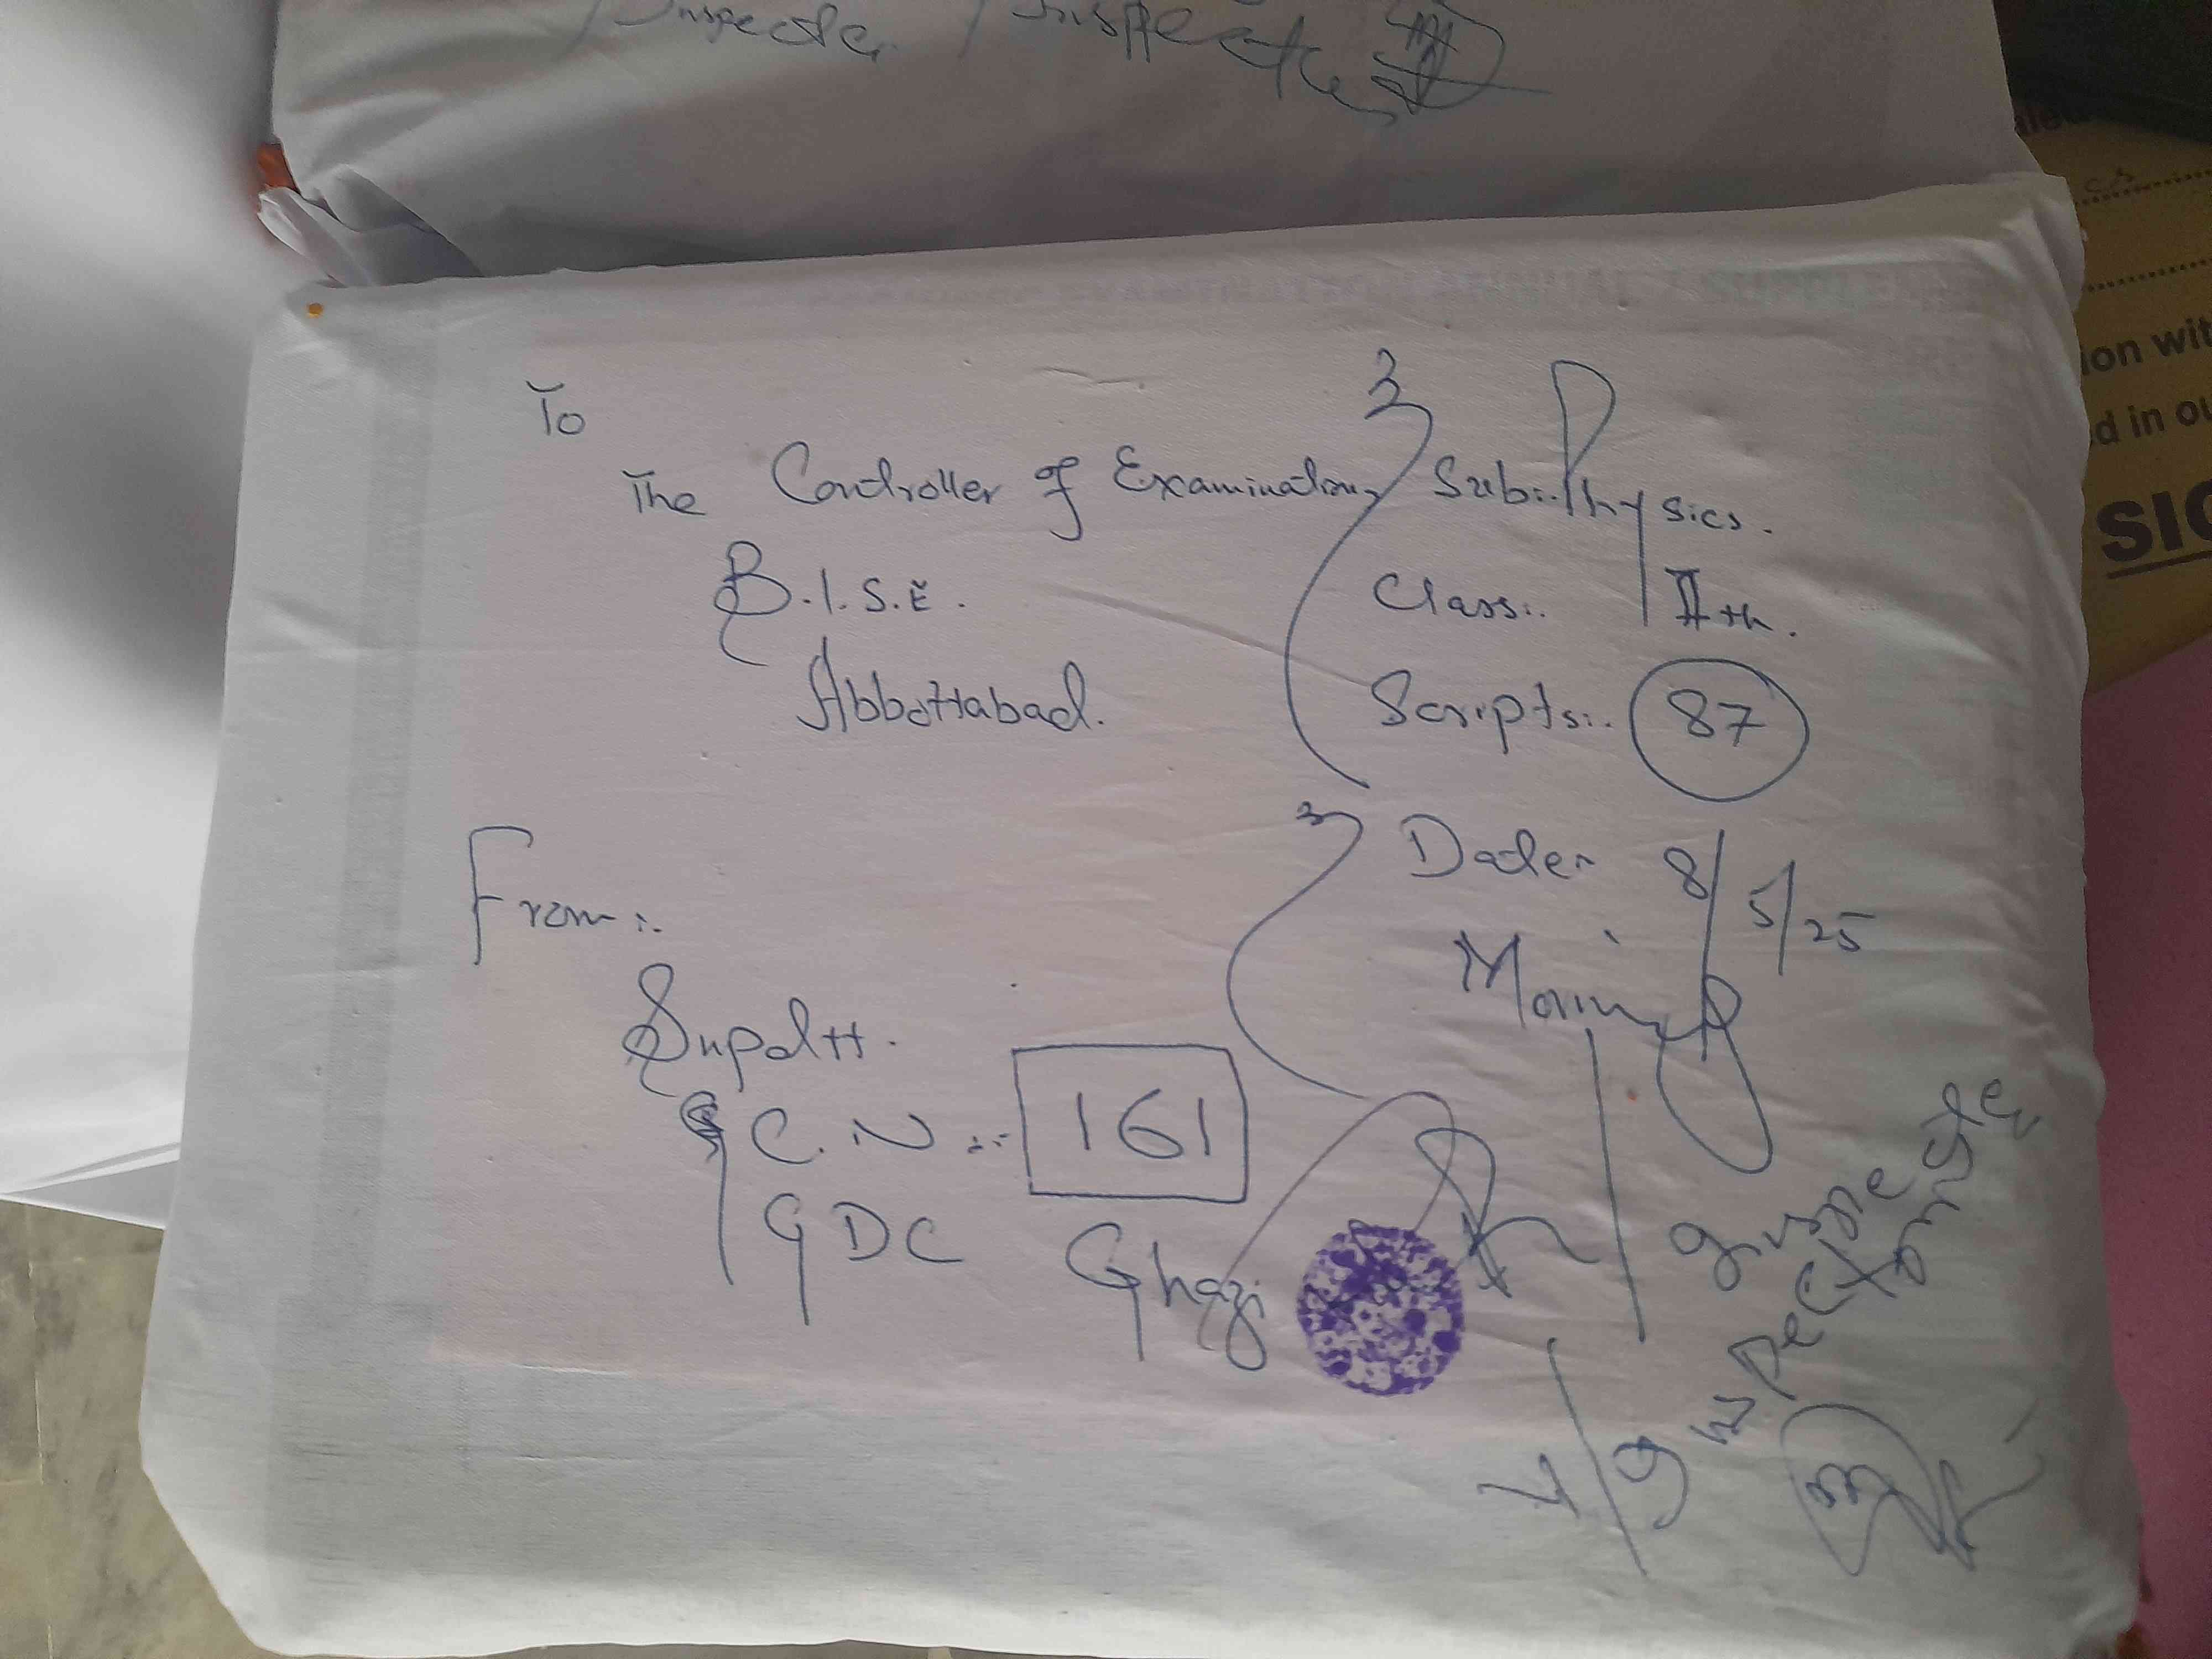 Inspecter / Inspecter
To
The Controller of Examination,
B.I.S.E.
Abbottabad.
Sub:. Physics.
Class:. IIth.
Scripts:. 87
From:.
Supdtt.
C.N:- 161
GDC Ghazi
Date:- 8/5/25
Morning
ion wit
d in ou
SIG